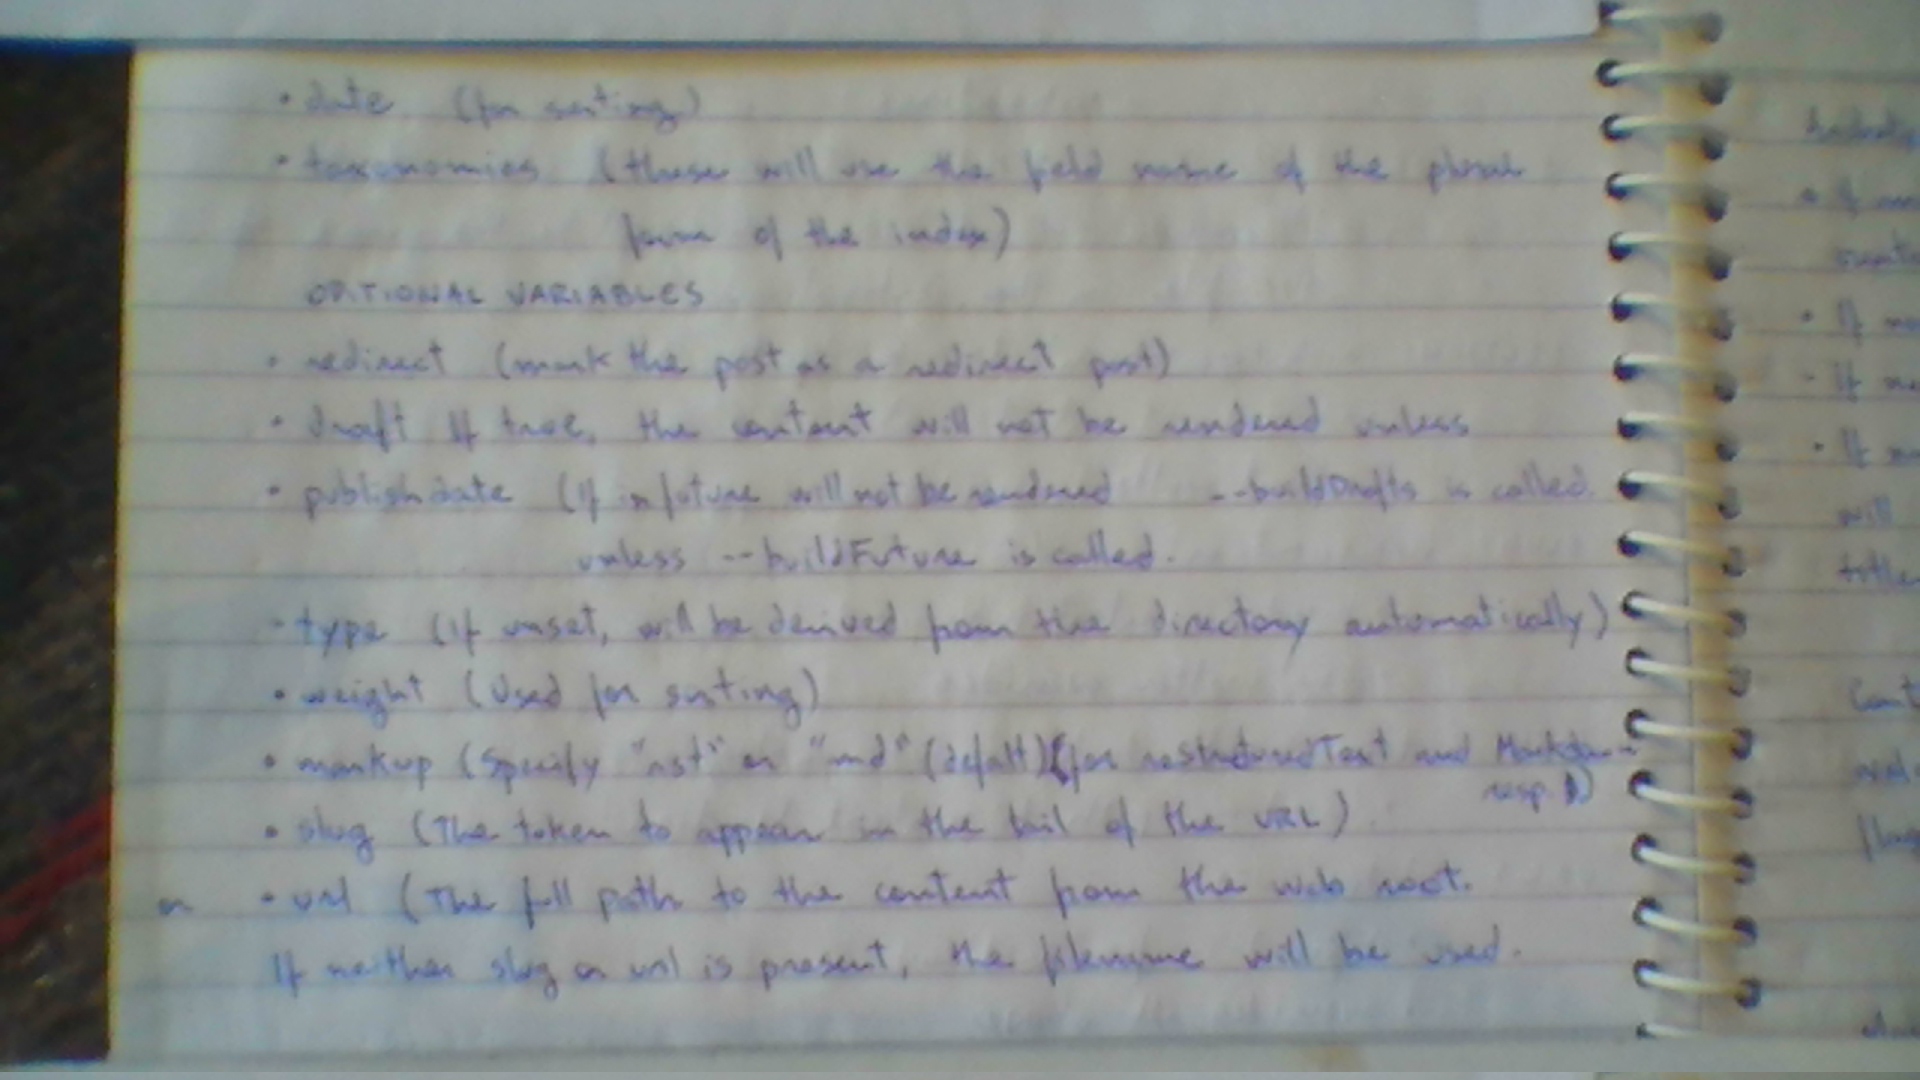 • date (for sorting)
• taxonomies (these will use the field name of the plural
form of the index)
OPTIONAL VARIABLES
• redirect (mark the post as a redirect post)
• draft If true, the content will not be rendered unless
--buildDrafts is called.
• publishdate (If in future will not be rendered
unless --buildFuture is called.
- type (if unset, will be derived from the directory automatically)
• weight (Used for sorting)
• markup (Specify "rst" or "md" (defalt) (for reStructuredText and Markdown
resp.)
• slug (The token to appear in the tail of the URL)
or • url (The full path to the content from the web root.
If neither slug or url is present, the filename will be used.
• If
• If
- If
• If
will